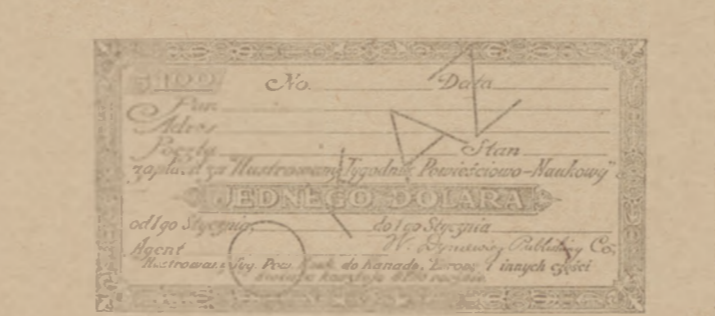 $1.00 No. Data
Pan
Adres
Poczta Stan
zapłacił za "Illustrowany Tygodnik Powieściowo-Naukowy"
JEDNEGO DOLARA
od 1go Stycznia, do 1go Stycznia
Agent W. Dyniewicz Publishing Co.
Illustrowany Tyg. Pow. Nauk. do Kanady, Europy i innych części
świata kosztuje